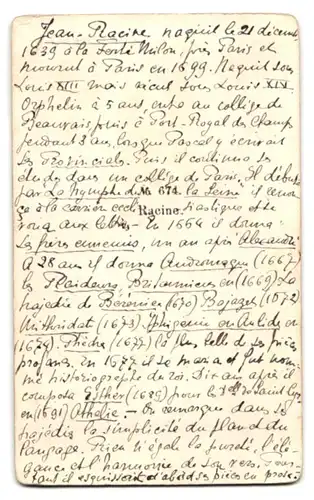 Jean Racine naquit le 21 décemb
1639 à la Ferté Milon, près Paris et
mourut à Paris en 1699. Naquit sous
Louis XIII mais vécut sous Louis XIV.
Orphelin à 5 ans, entra au collège de
Beauvais puis à Port-Royal des Champs
pendant 3 ans, lorsque Pascal y écrivait
les Provinciales. Puis il continua ses
études dans un collège de Paris. Il débuta
par La Nymphe de la Seine il renonce
№ 674.
à la carrière ecclésiastique et se
Racine.
voua aux lettres - En 1664 il donna
Les frères ennemis, un an après Alexandre
A 28 ans il donna Andromaque (1667)
les Plaideurs, Britannicus en (1669) La
tragédie de Bérénice (1670) Bajazet (1672)
Mithridate (1673) Iphigénie en Aulide en
(1674) Phèdre (1677) la plus belle de ses pièces
profanes. En 1677 il se maria et fut nom-
mé historiographe du roi. Dix ans après il
composa Esther (1689) pour les de Saint Cyr
en (1691) Athalie - On remarque dans ses
tragédies la simplicité du plan et du
langage. Rien n'égale la pureté, l'élé-
gance et l'harmonie de son vers. Pour-
tant il esquissait d'abord ses pièces en prose.